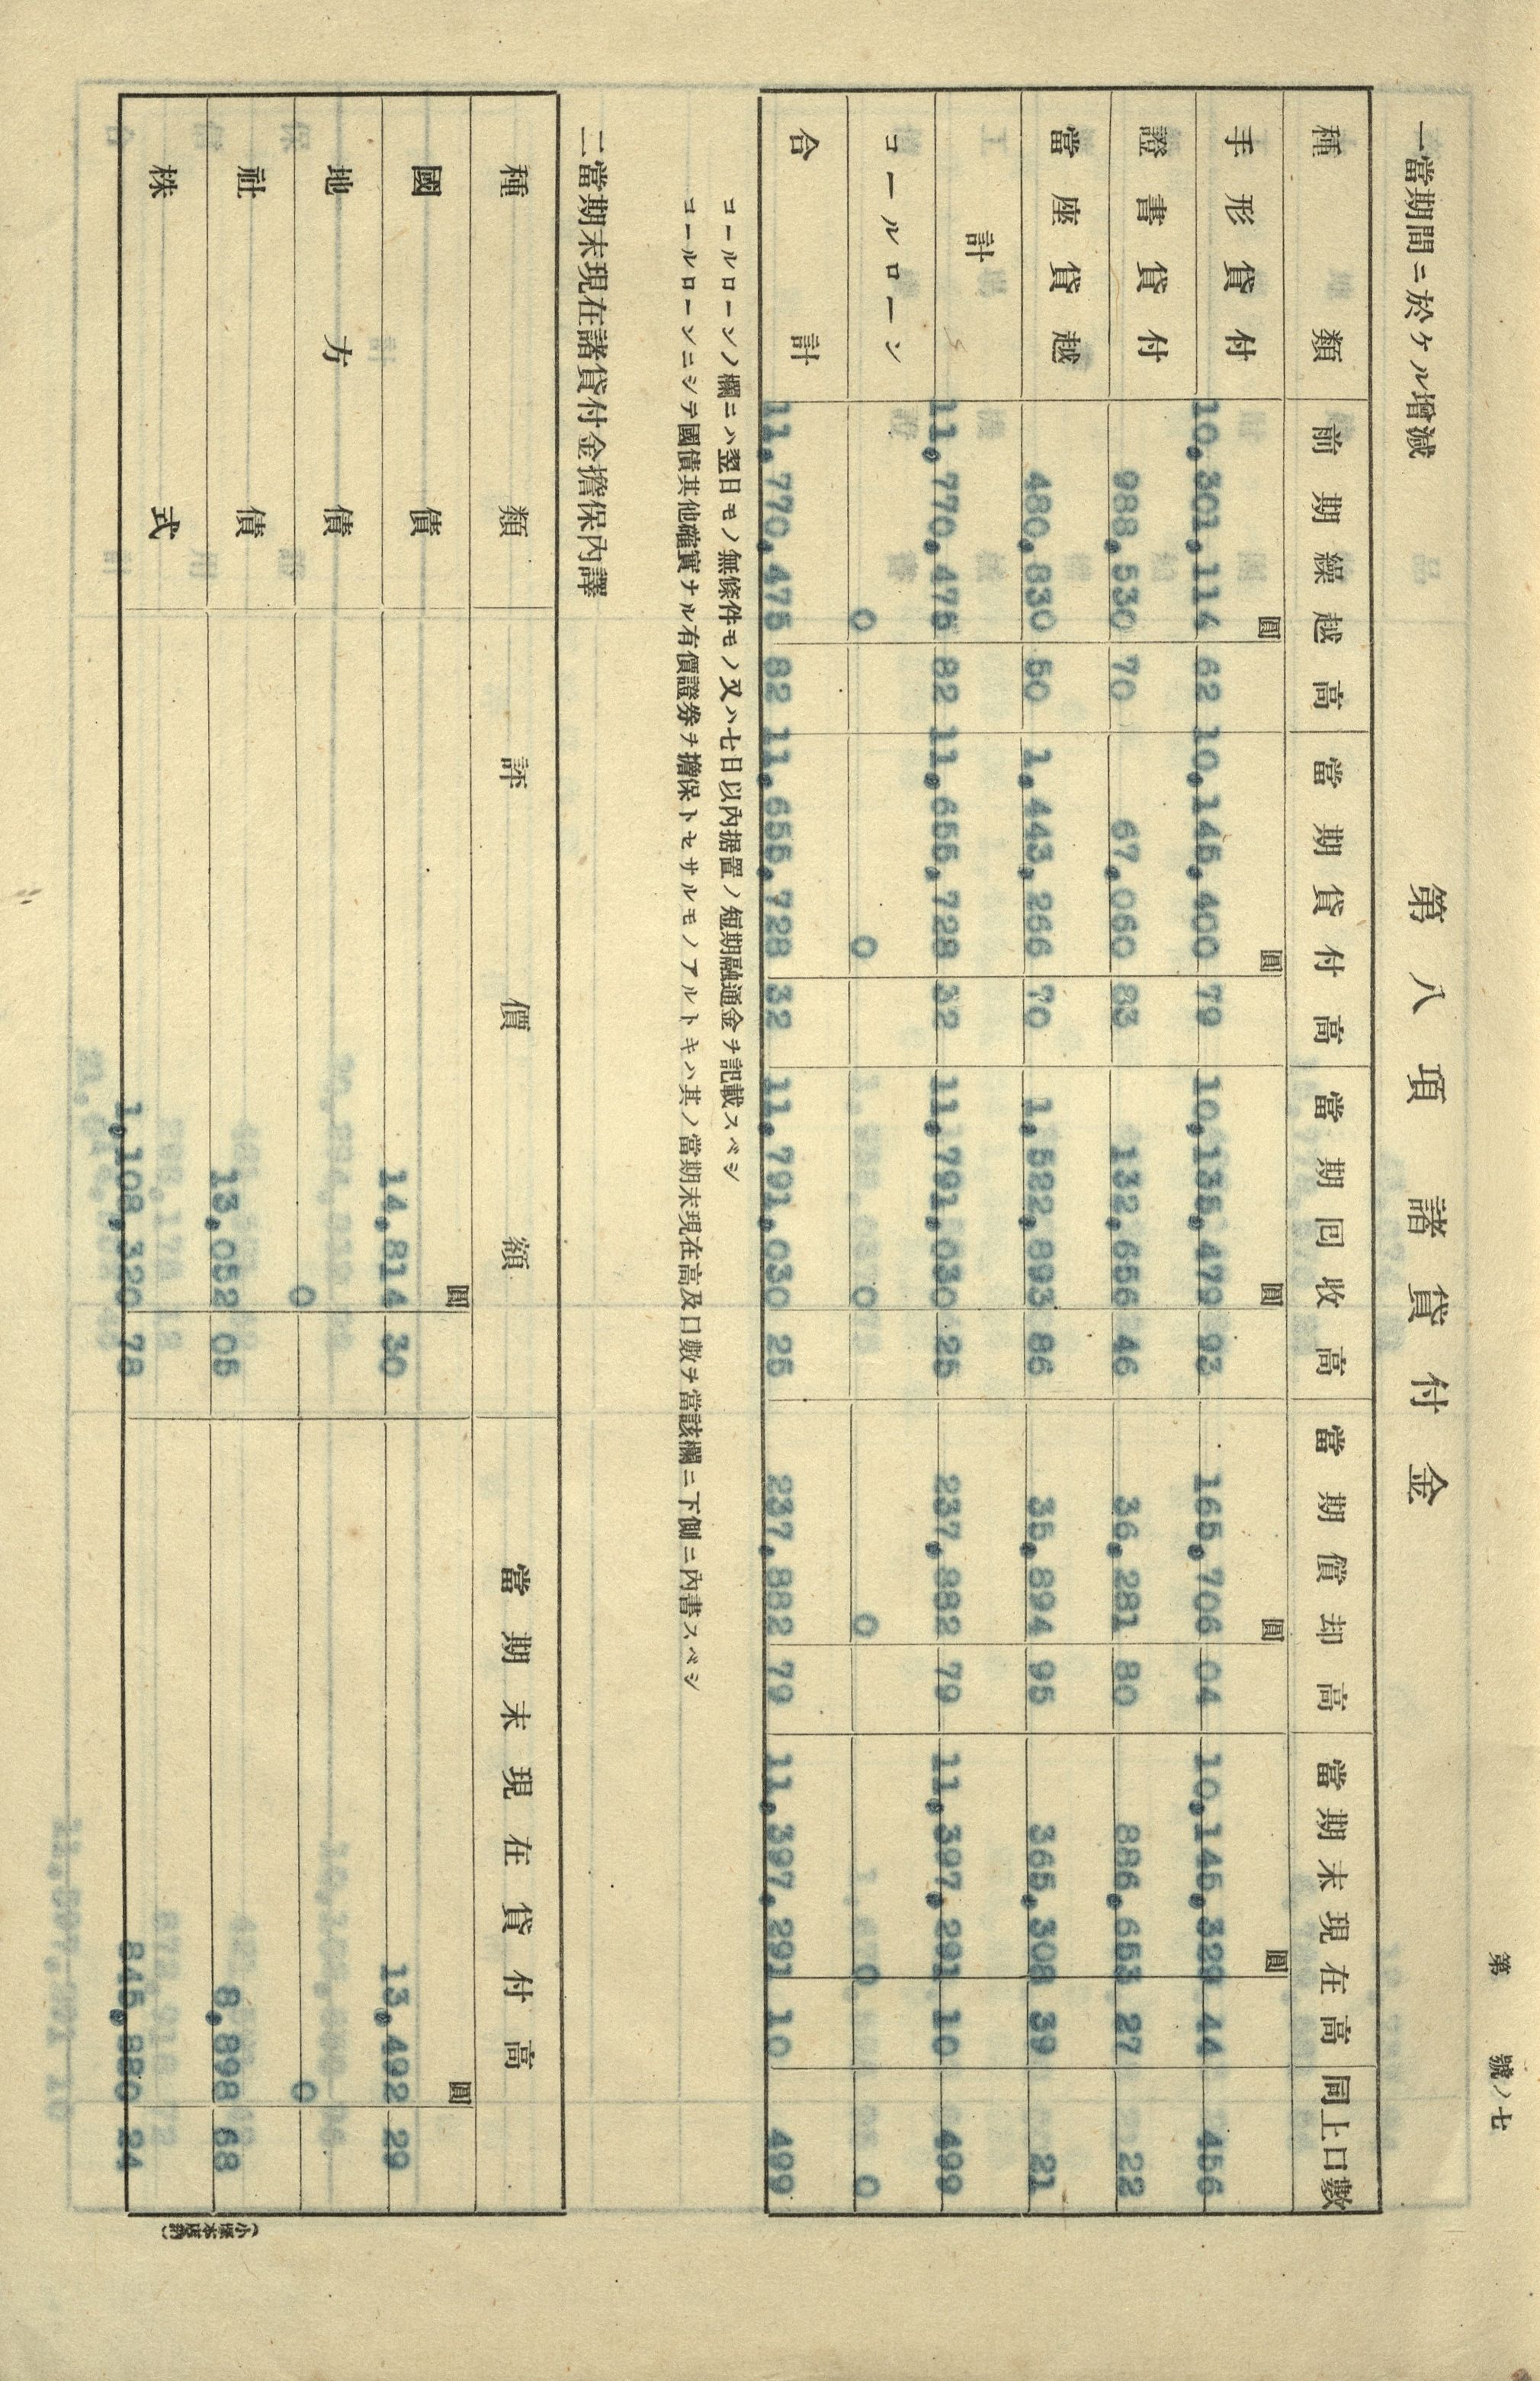 第 號ノ七
第八項 諸貸付金
一當期間ニ於ケル增減
種類 前期繰越高 當期貸付高 當期回收高 當期償却高 當期末現在高 同上口數
圓 圓 圓 圓 圓
手形貸付 10,301,114 62 10,145,400 79 10,135,479 93 165,706 04 10,145,329 44 456
證書貸付 988,530 70 67,060 83 132,656 46 36,281 80 886,653 27 22
當座貸越 480,830 50 1,443,266 70 1,522,893 86 35,894 95 365,308 39 21
計 11,770,475 82 11,655,728 32 11,791,030 25 237,882 79 11,397,291 10 499
コールローン 0 0 0 0 0 0
合計 11,770,475 82 11,655,728 32 11,791,030 25 237,882 79 11,397,291 10 499
コールローンノ欄ニハ翌日モノ無條件モノ又ハ七日以內据置ノ短期融通金ヲ記載スベシ
コールローンニシテ國債其他確實ナル有價證券ヲ擔保トセサルモノアルトキハ其ノ當期末現在高及口數ヲ當該欄ニ下側ニ內書スベシ
二當期末現在諸貸付金擔保內譯
種類 評價額 當期末現在貸付高
圓 圓
國債 14,814 30 13,492 29
地方債 0 0
社債 13,052 05 8,898 68
株式 1,108,320 78 845,880 24